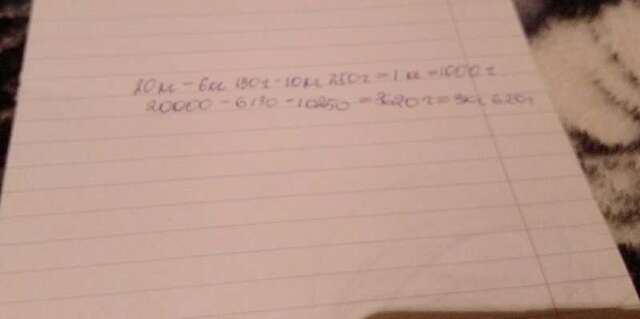 20кг - 6кг 130г - 10кг 250г = 1кг = 1000г
20000 - 6130 - 10250 = 3620г = 3кг 620г